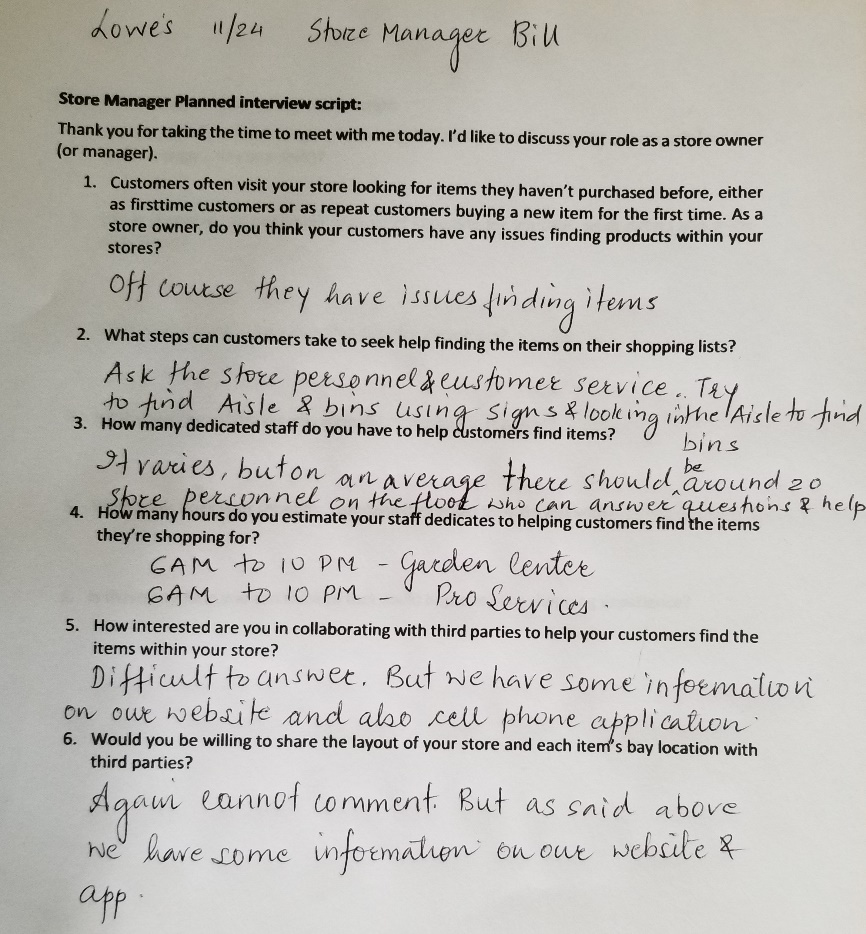 Lowe's 11/24 Store Manager Bill
Store Manager Planned interview script:
Thank you for taking the time to meet with me today. I'd like to discuss your role as a store owner
(or manager).
1. Customers often visit your store looking for items they haven't purchased before, either
as firsttime customers or as repeat customers buying a new item for the first time. As a
store owner, do you think your customers have any issues finding products within your
stores?
Off course they have issues finding items
2. What steps can customers take to seek help finding the items on their shopping lists?
Ask the store personnel & customer service. Try
to find Aisle & bins using signs & looking in the Aisle to find
bins
3. How many dedicated staff do you have to help customers find items?
It varies, but on an average there should be around 20
store personnel on the floor who can answer questions & help
4. How many hours do you estimate your staff dedicates to helping customers find the items
they're shopping for?
6AM to 10 PM - Garden Center
6AM to 10 PM - Pro Services.
5. How interested are you in collaborating with third parties to help your customers find the
items within your store?
Difficult to answer. But we have some information
on our website and also cell phone application.
6. Would you be willing to share the layout of your store and each item's bay location with
third parties?
Again cannot comment. But as said above
we have some information on our website &
app.